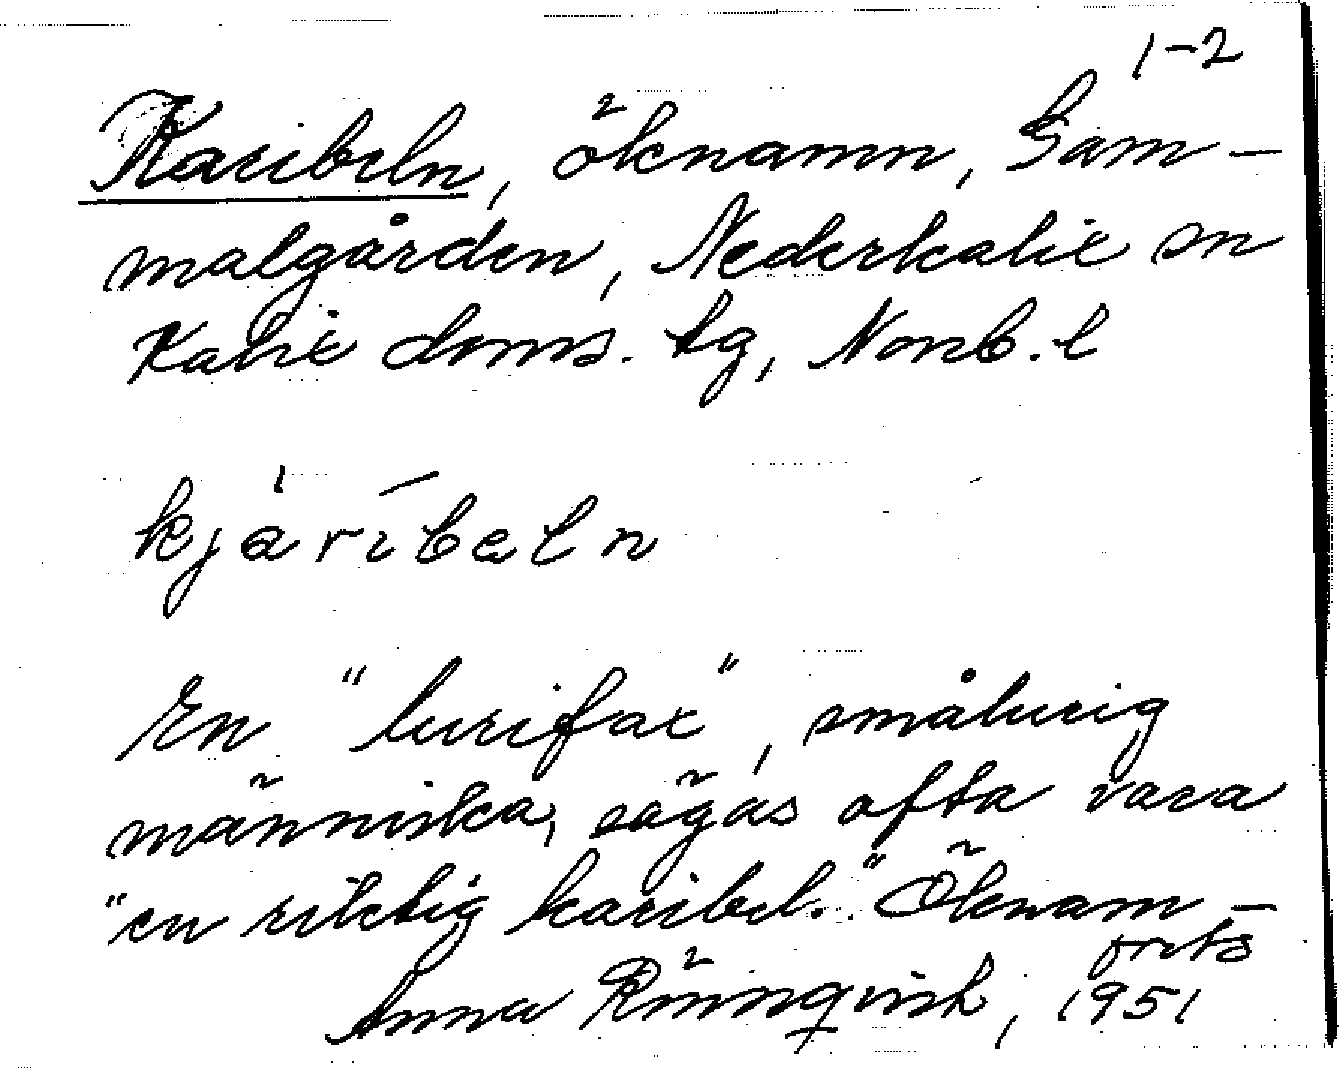 1-2
Karibeln, öknamn, Gam-
malgården, Nederkalix sn
Kalix doms. tg, Norrb. l
kjāribeln
En "lurifax", smålurig
människa, sägas ofta vara
"en riktig karibel." Öknam-
forts
Anna Rönnqvist, 1951